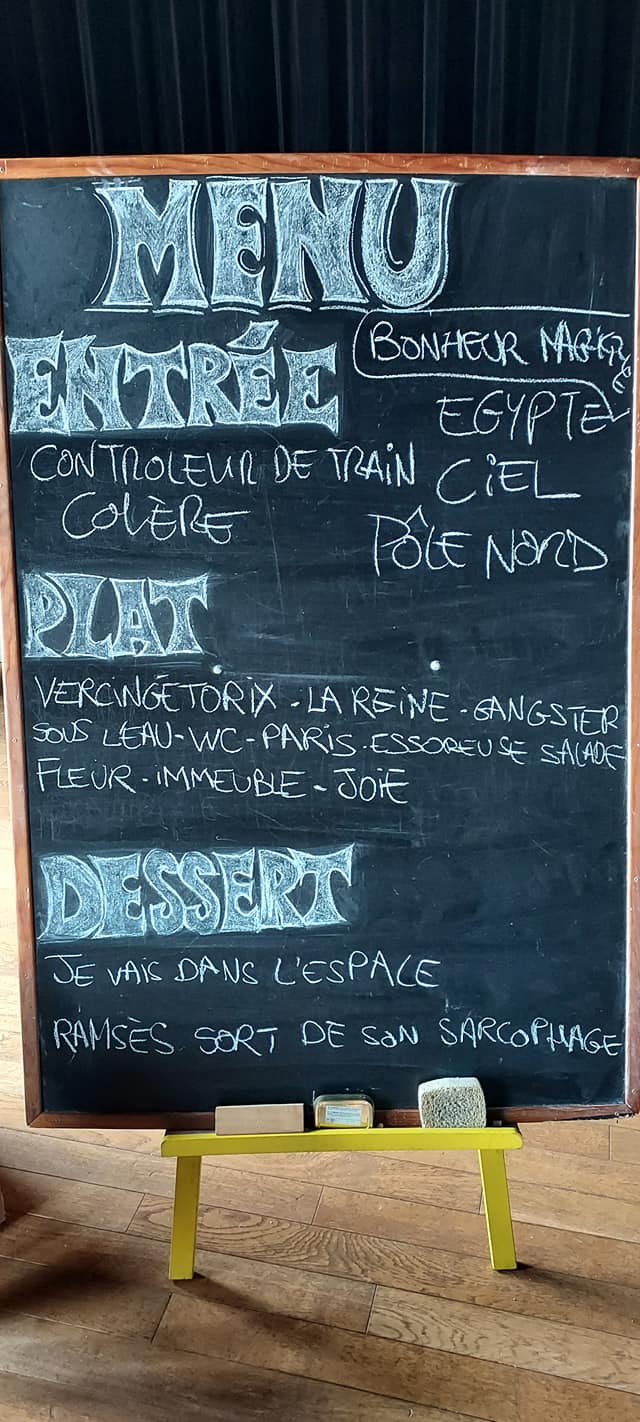 MENU
ENTRÉE
BONHEUR
EGYPTE
CONTROLEUR DE TRAIN
CIEL
COLÈRE
PÔLE NORD
PLAT
VERCINGÉTORIX - LA REINE - GANGSTER
SOUS L'EAU - WC - PARIS - ESSOREUSE SALADE
FLEUR - IMMEUBLE - JOIE
DESSERT
JE VAIS DANS L'ESPACE
RAMSÈS SORT DE SON SARCOPHAGE